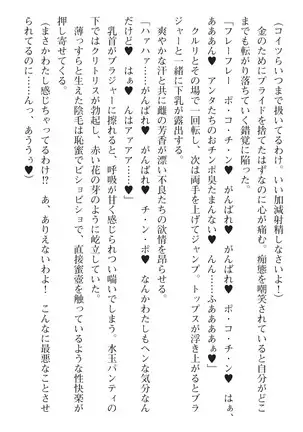 (コイツらいつまで抜いてるわけ。いい加減射精しなさいよ!)
金のためにプライドを捨てたはずなのに心が痛む。痴態を嘲笑されていると自分がどこ
までも転がり落ちていく錯覚に陥った。
「フレーフレー ポ・コ・チ・ン♥ がんばれ♥ がんばれ♥ ポ・コ・チ・ン♥ はぁ、
あああん♥ アンタたちのおチンポ臭たまんない♥ んん……ふああああぁ♥」
クルリとその場で一回転し、次は両手を上げてジャンプ。トップスが浮き上がるとブラ
ジャーと一緒に下乳が露出する。
爽やかな汗と共に雌の芳香が漂い不良たちの欲情を昂らせる。
「ハァハァ……がんばれ♥ がんばれ♥ チ・ン・ポ♥ なんかわたしもヘンな気分なん
だけど♥ はぁ♥ んはぁアァァ……♥」
乳首がブラジャーに擦れると、呼吸が甘く感じられつい喘いでしまう。水玉パンティの
下ではクリトリスが勃起し、赤い花の芽のように屹立していた。
薄っすらと生えた陰毛は恥蜜でビショビショで、直接蜜壺を触っているような性快楽が
押し寄せてくる。
(まさかわたし感じちゃってるわけ!? あ、ありえないわよ! こんなに最悪なことさせ
られてるのに……んっ、あううぅ♥)